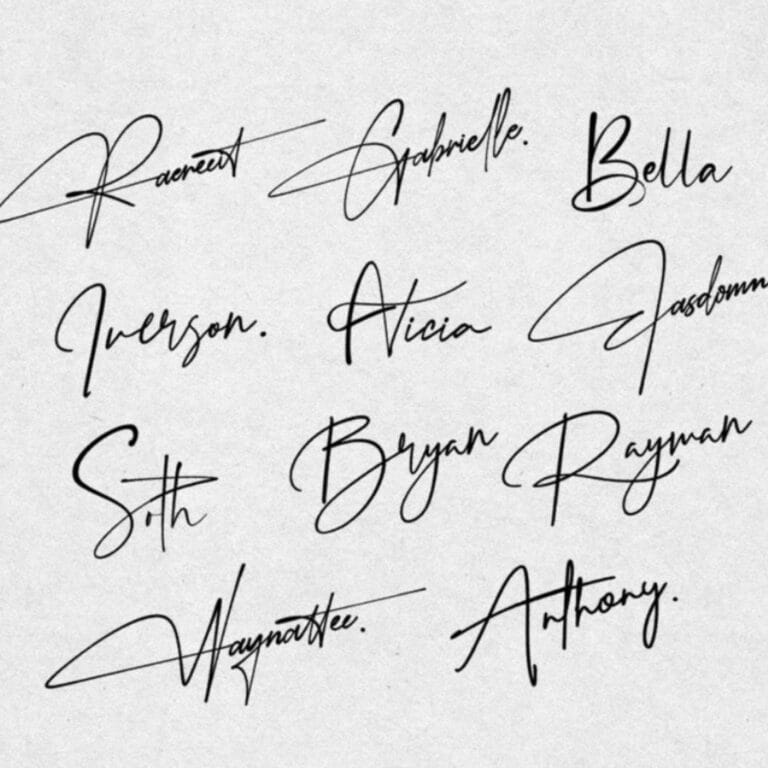 Raereett Gabrielle. Bella
Iverson. Alicia Jasdomn
Soth Bryan Rayman
Waynattee. Anthony.